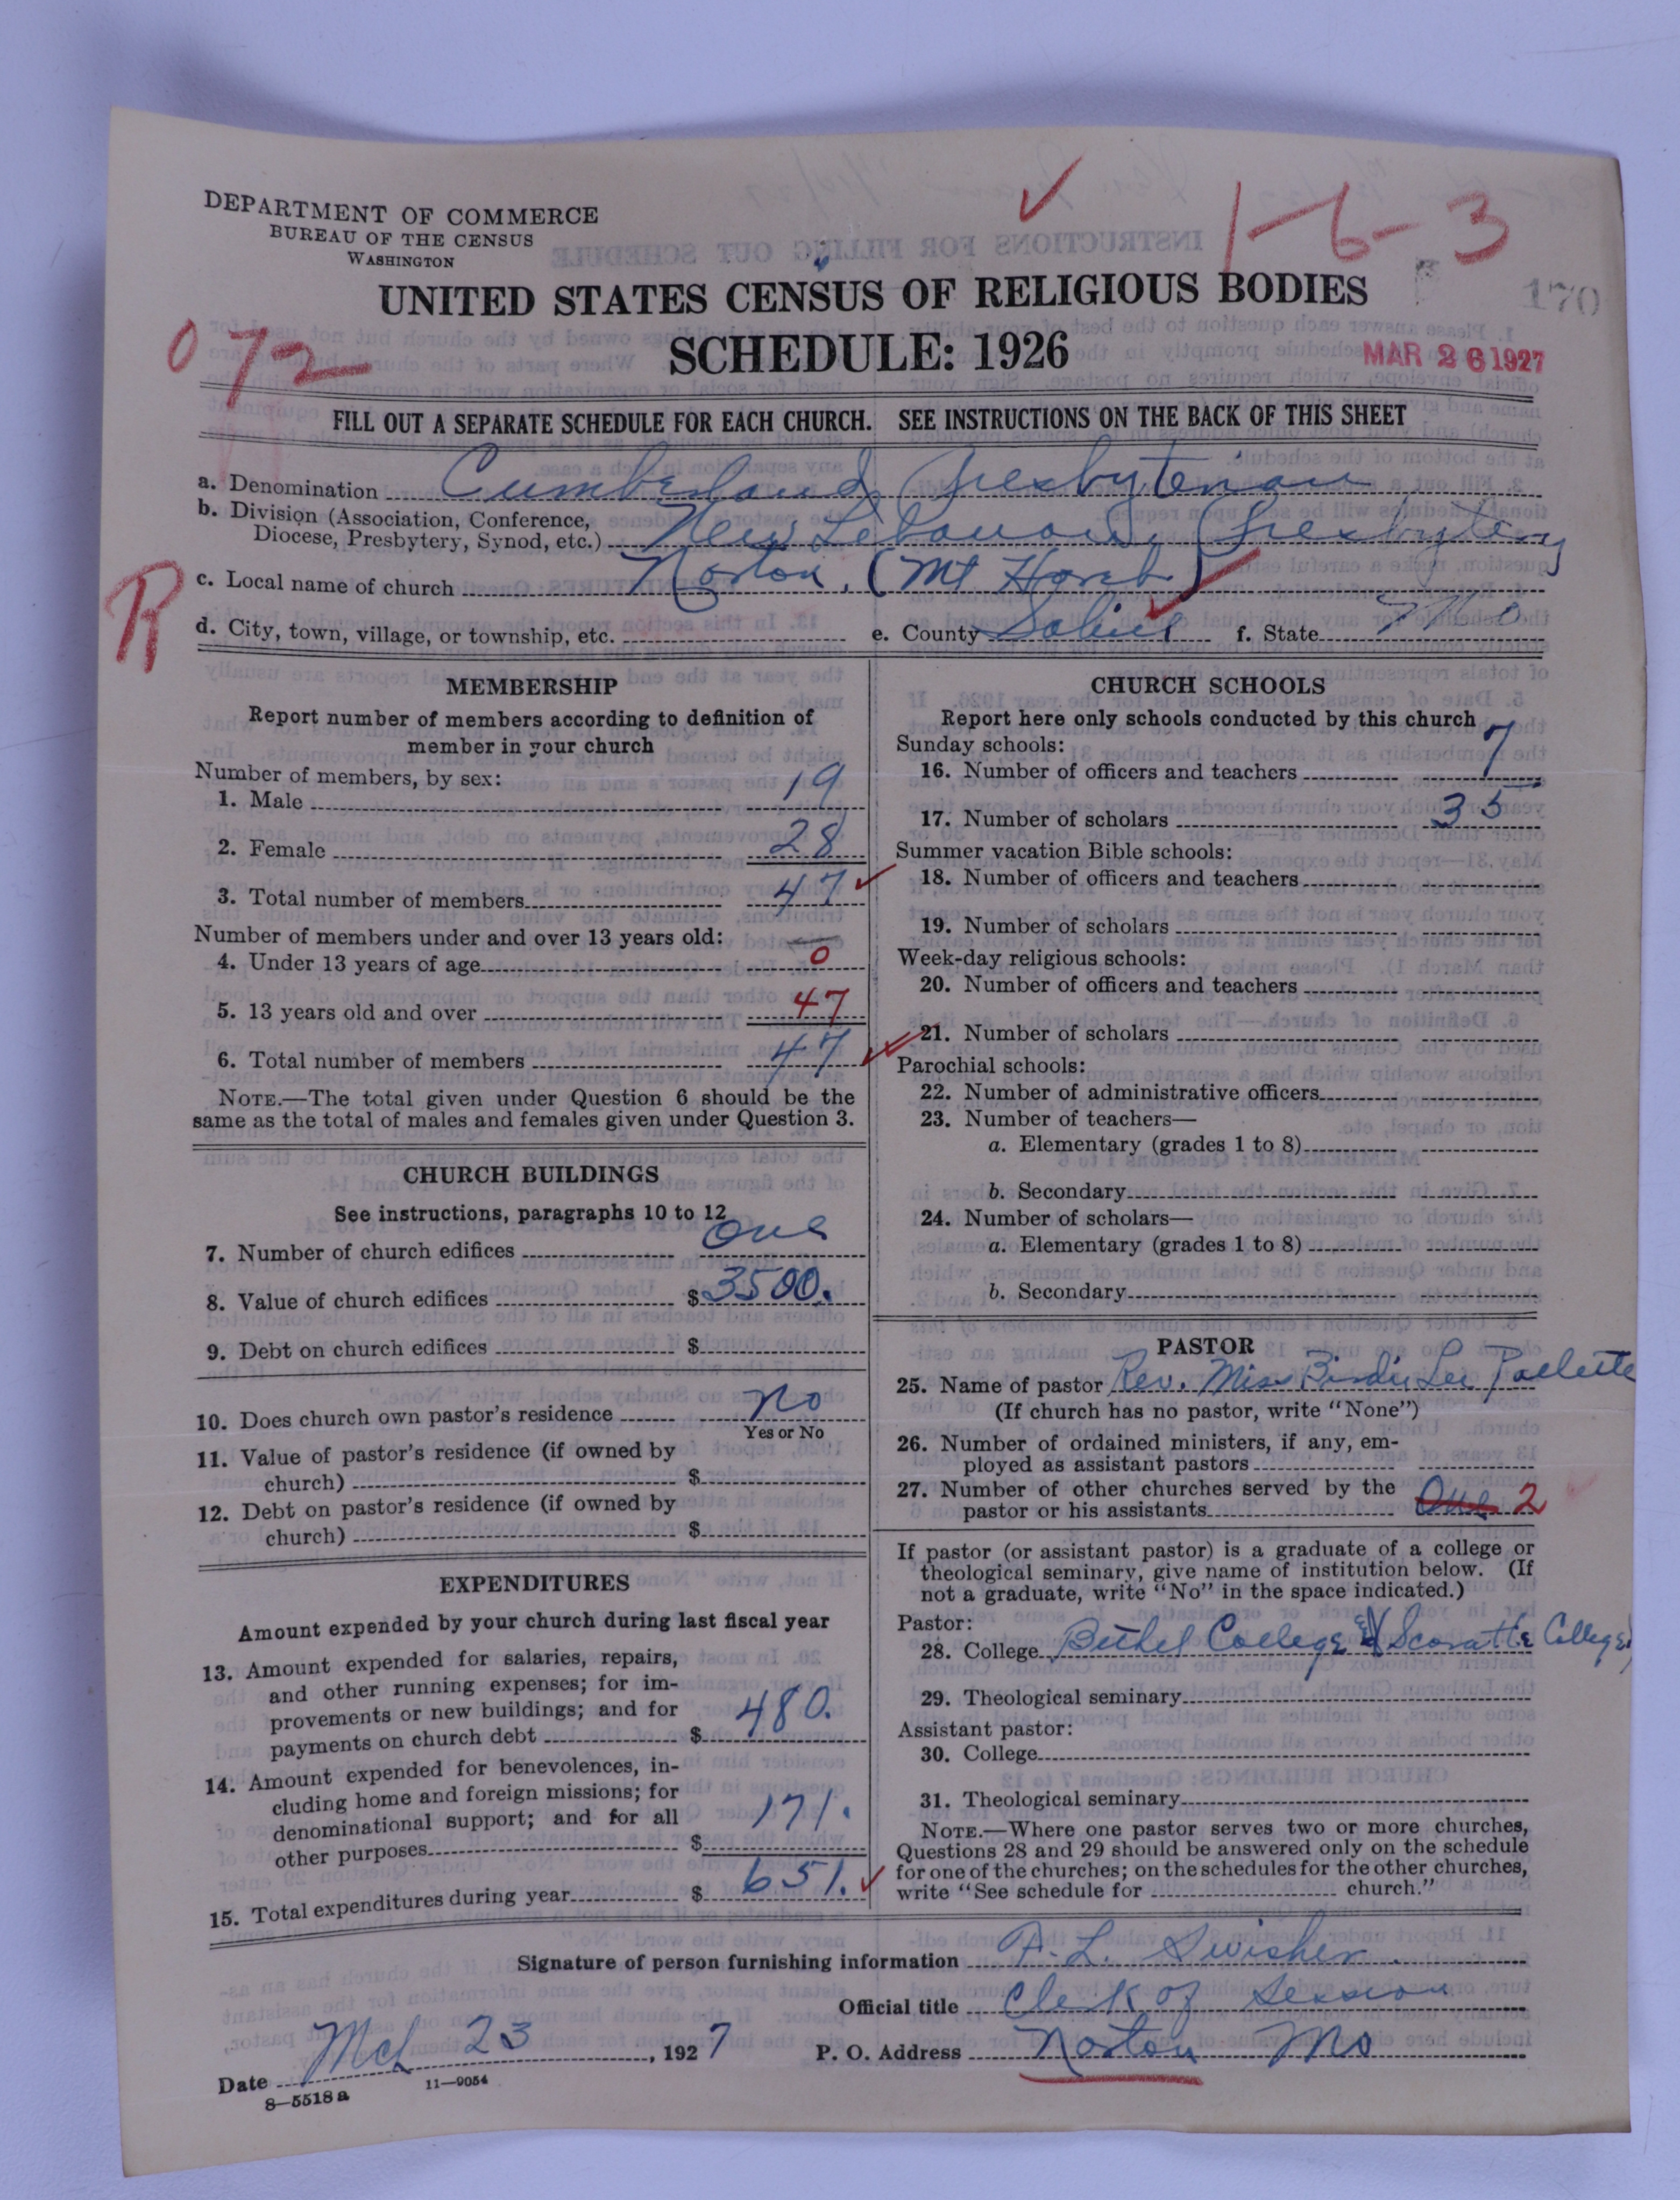 DEPARTMENT OF COMMERCE
BUREAU OF THE CENSUS
WASHINGTON
1-6-3
170
UNITED STATES CENSUS OF RELIGIOUS BODIES
072
SCHEDULE: 1926
MAR 26 1927
FILL OUT A SEPARATE SCHEDULE FOR EACH CHURCH. SEE INSTRUCTIONS ON THE BACK OF THIS SHEET
a. Denomination Cumberland Presbyterian
b. Division (Association, Conference,
Diocese, Presbytery, Synod, etc.) New Lebanon Presbytery
R
c. Local name of church Norton. (Mt Horeb)
d. City, town, village, or township, etc. e. County Saline f. State Mo
MEMBERSHIP
Report number of members according to definition of
member in your church
Number of members, by sex:
1. Male 19
2. Female 28
3. Total number of members 47
Number of members under and over 13 years old:
4. Under 13 years of age 0
5. 13 years old and over 47
6. Total number of members 47
NOTE.—The total given under Question 6 should be the
same as the total of males and females given under Question 3.
CHURCH BUILDINGS
See instructions, paragraphs 10 to 12
7. Number of church edifices One
8. Value of church edifices $3500.
9. Debt on church edifices $
10. Does church own pastor's residence No
Yes or No
11. Value of pastor's residence (if owned by
church) $
12. Debt on pastor's residence (if owned by
church) $
EXPENDITURES
Amount expended by your church during last fiscal year
13. Amount expended for salaries, repairs,
and other running expenses; for im-
provements or new buildings; and for
payments on church debt $ 480.
14. Amount expended for benevolences, in-
cluding home and foreign missions; for
denominational support; and for all
other purposes $ 171.
15. Total expenditures during year $ 651.
CHURCH SCHOOLS
Report here only schools conducted by this church
Sunday schools:
16. Number of officers and teachers 7
17. Number of scholars 35
Summer vacation Bible schools:
18. Number of officers and teachers
19. Number of scholars
Week-day religious schools:
20. Number of officers and teachers
21. Number of scholars
Parochial schools:
22. Number of administrative officers
23. Number of teachers—
a. Elementary (grades 1 to 8)
b. Secondary
24. Number of scholars—
a. Elementary (grades 1 to 8)
b. Secondary
PASTOR
25. Name of pastor Rev. Miss Birdie Lee
(If church has no pastor, write "None")
26. Number of ordained ministers, if any, em-
ployed as assistant pastors
27. Number of other churches served by the
pastor or his assistants One 2
If pastor (or assistant pastor) is a graduate of a college or
theological seminary, give name of institution below. (If
not a graduate, write "No" in the space indicated.)
Pastor:
28. College Bethel College & Scaratte College
29. Theological seminary
Assistant pastor:
30. College
31. Theological seminary
NOTE.—Where one pastor serves two or more churches,
Questions 28 and 29 should be answered only on the schedule
for one of the churches; on the schedules for the other churches,
write "See schedule for church."
Signature of person furnishing information A. L. Swisher
Official title Clerk of Session
Date Mch 23, 1927 P. O. Address Norton Mo
8—5518a 11—9054